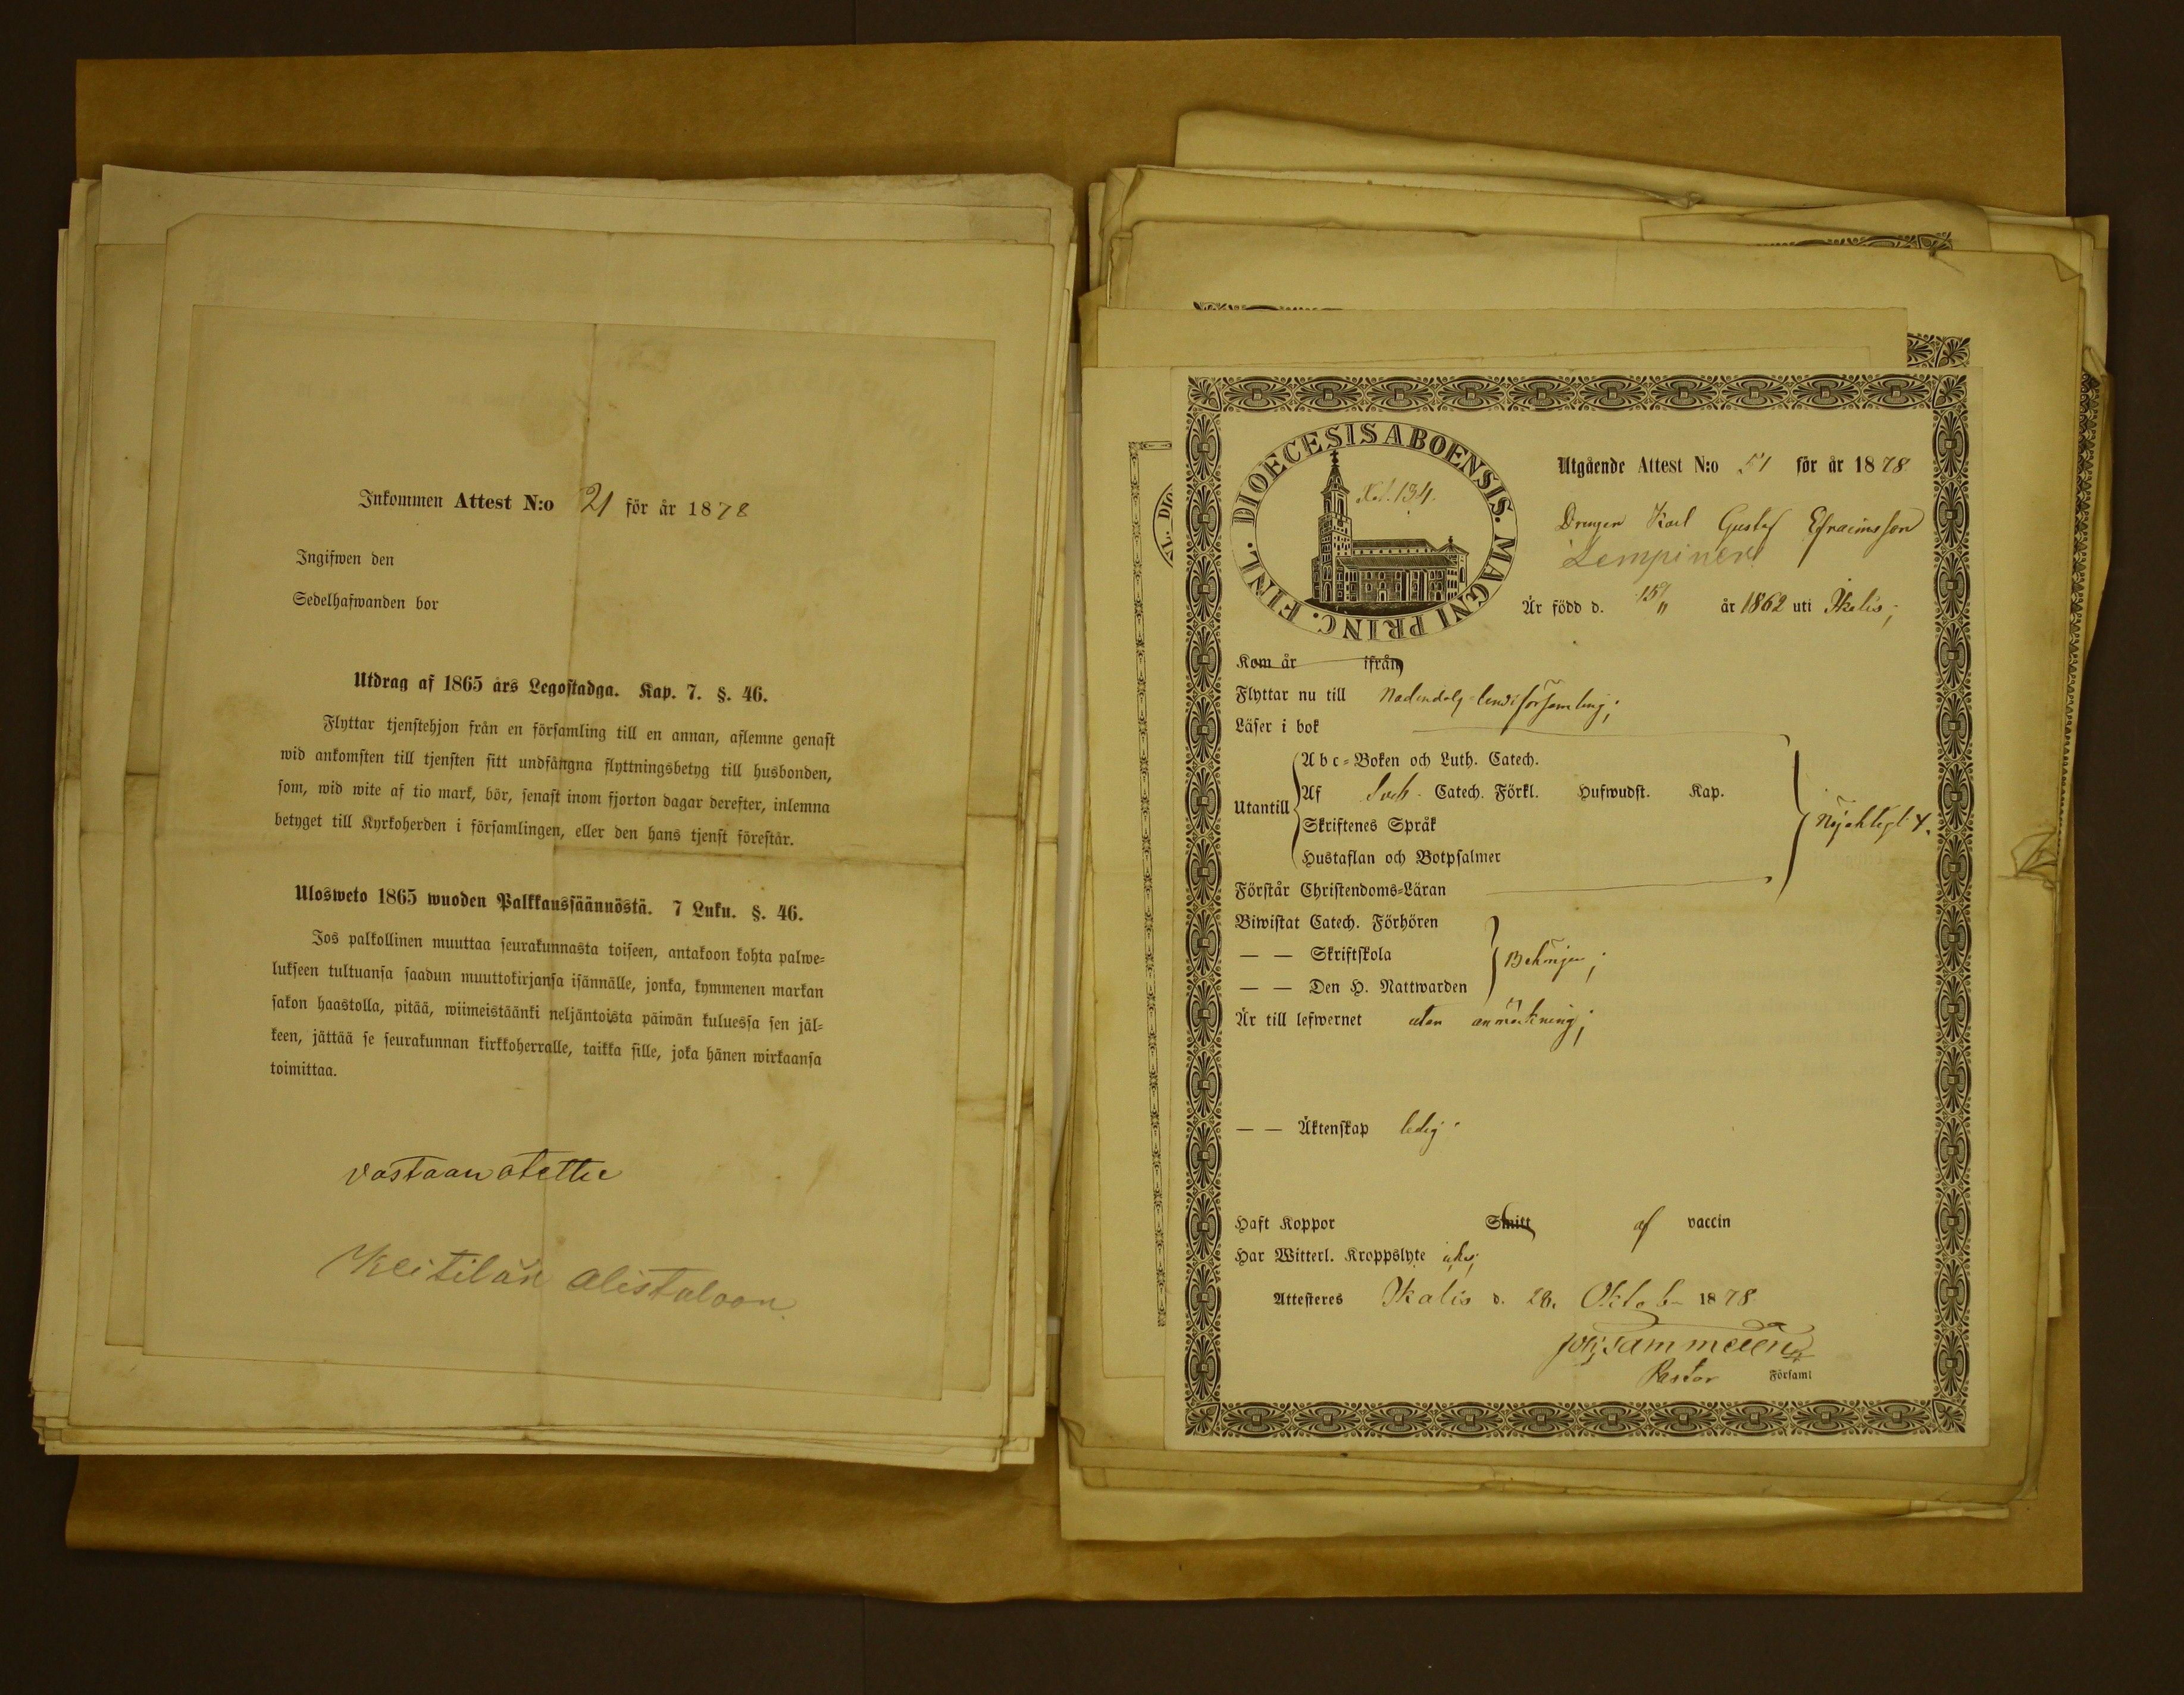 Inkommen Attest N:o 21 för år 1878
Ingifwen den
Sedelhafwanden bor
Utdrag af 1865 års Legostadga. Kap. 7. §. 46.
Flyttar tjenstehjon från en församling till en annan, aflemne genast
wid ankomsten till tjensten sitt undfångna flyttningsbetyg till husbonden,
som, wid wite af tio mark, bör, senast inom fjorton dagar derefter, inlemna
betyget till Kyrkoherden i församlingen, eller den hans tjenst förestår.
Ulosweto 1865 wuoden Palkkaussäännöstä. 7 Luku. §. 46.
Jos palkollinen muuttaa seurakunnasta toiseen, antakoon kohta palwe=
lukseen tultuansa saadun muuttokirjansa isännälle, jonka, kymmenen markan
sakon haastolla, pitää, wiimeistäänki neljäntoista päiwän kuluessa sen jäl=
keen, jättää se seurakunnan kirkkoherralle, taikka sille, joka hänen wirkaansa
toimittaa.
vastaan otettu
Keitilän Alistaloon
DIOECESIS ABOENSIS. MAGNI PRINC. FINL.
Fol. 134.
Utgående Attest N:o 51 för år 1878
Drengen Karl Gustaf Efraimsson
Lempinen
Är född d. 15/11 år 1862 uti Ikalis;
Kom år ifrån
Flyttar nu till Nådendals landsförsamling;
Läser i bok
Utantill
Abc=Boken och Luth. Catech.
Af Sveb. Catech. Förkl. Hufwudst. Kap.
Skriftenes Språk
Hustaflan och Botpsalmer
Nöjaktigt
Förstår Christendoms=Läran
Biwistat Catech. Förhören
— — Skriftskola
— — Den H. Nattwarden
Behörigen;
Är till lefwernet utan anmärkning;
— — Äktenskap ledig
Haft Koppor Smitt af vaccin
Har Witterl. Kroppslyte
Attesteres Ikalis d. 28. Oktober 1878
Pastor Församl